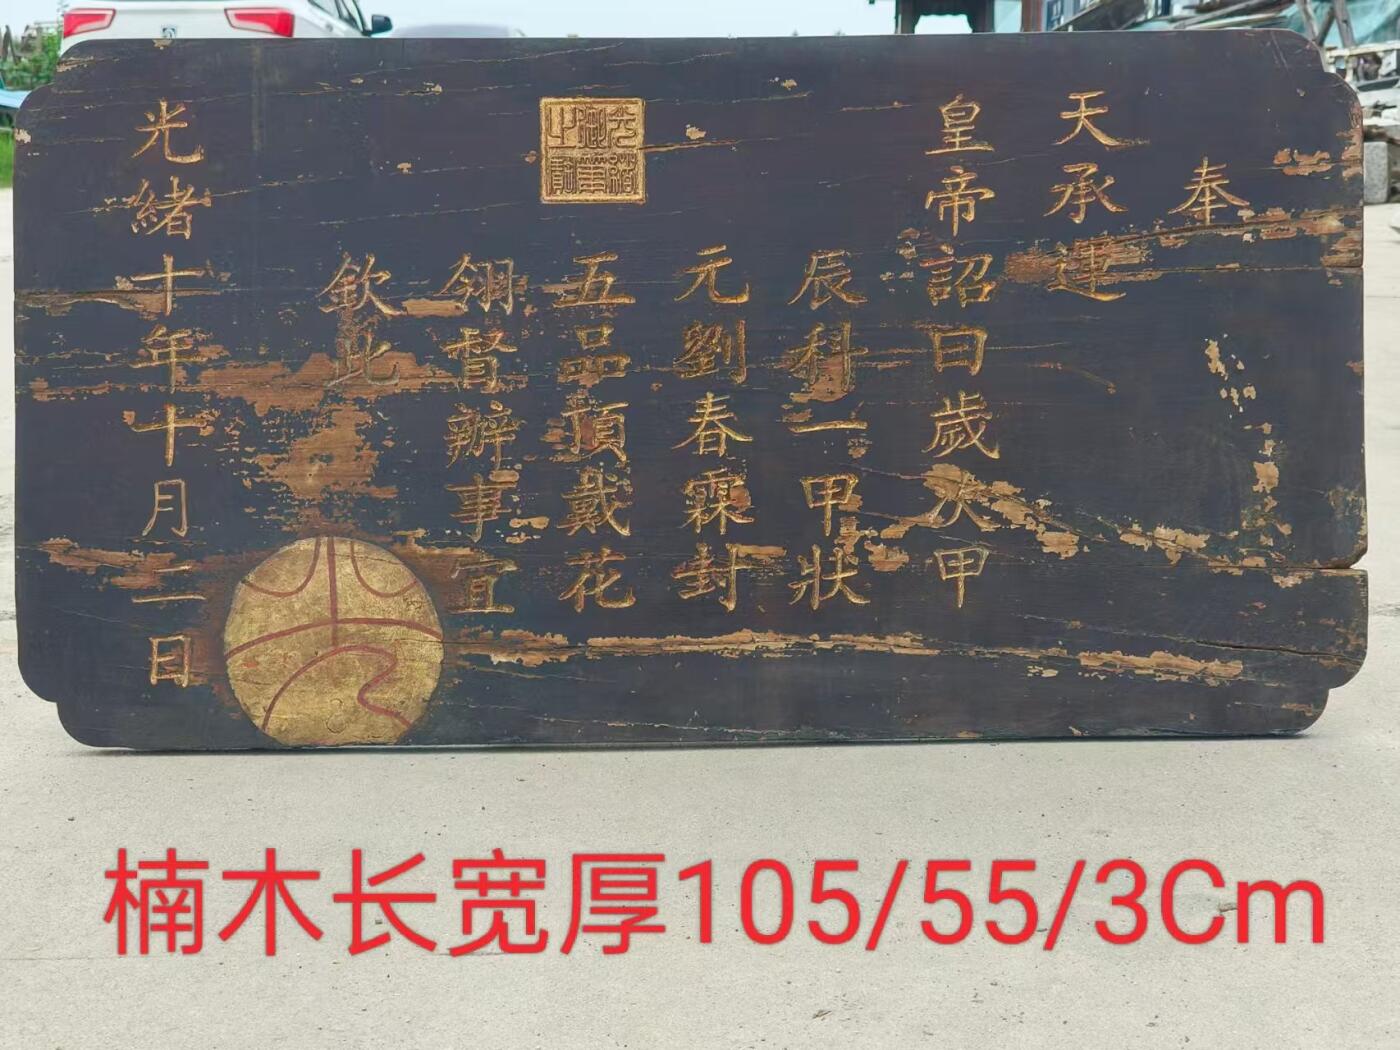 奉
天承運
皇帝詔曰歲次甲
辰科一甲狀
元劉春霖封
五品頂戴花
翎督辦事宜
欽此
光緒十年十月二日
光緒御筆之寶
楠木长宽厚105/55/3Cm